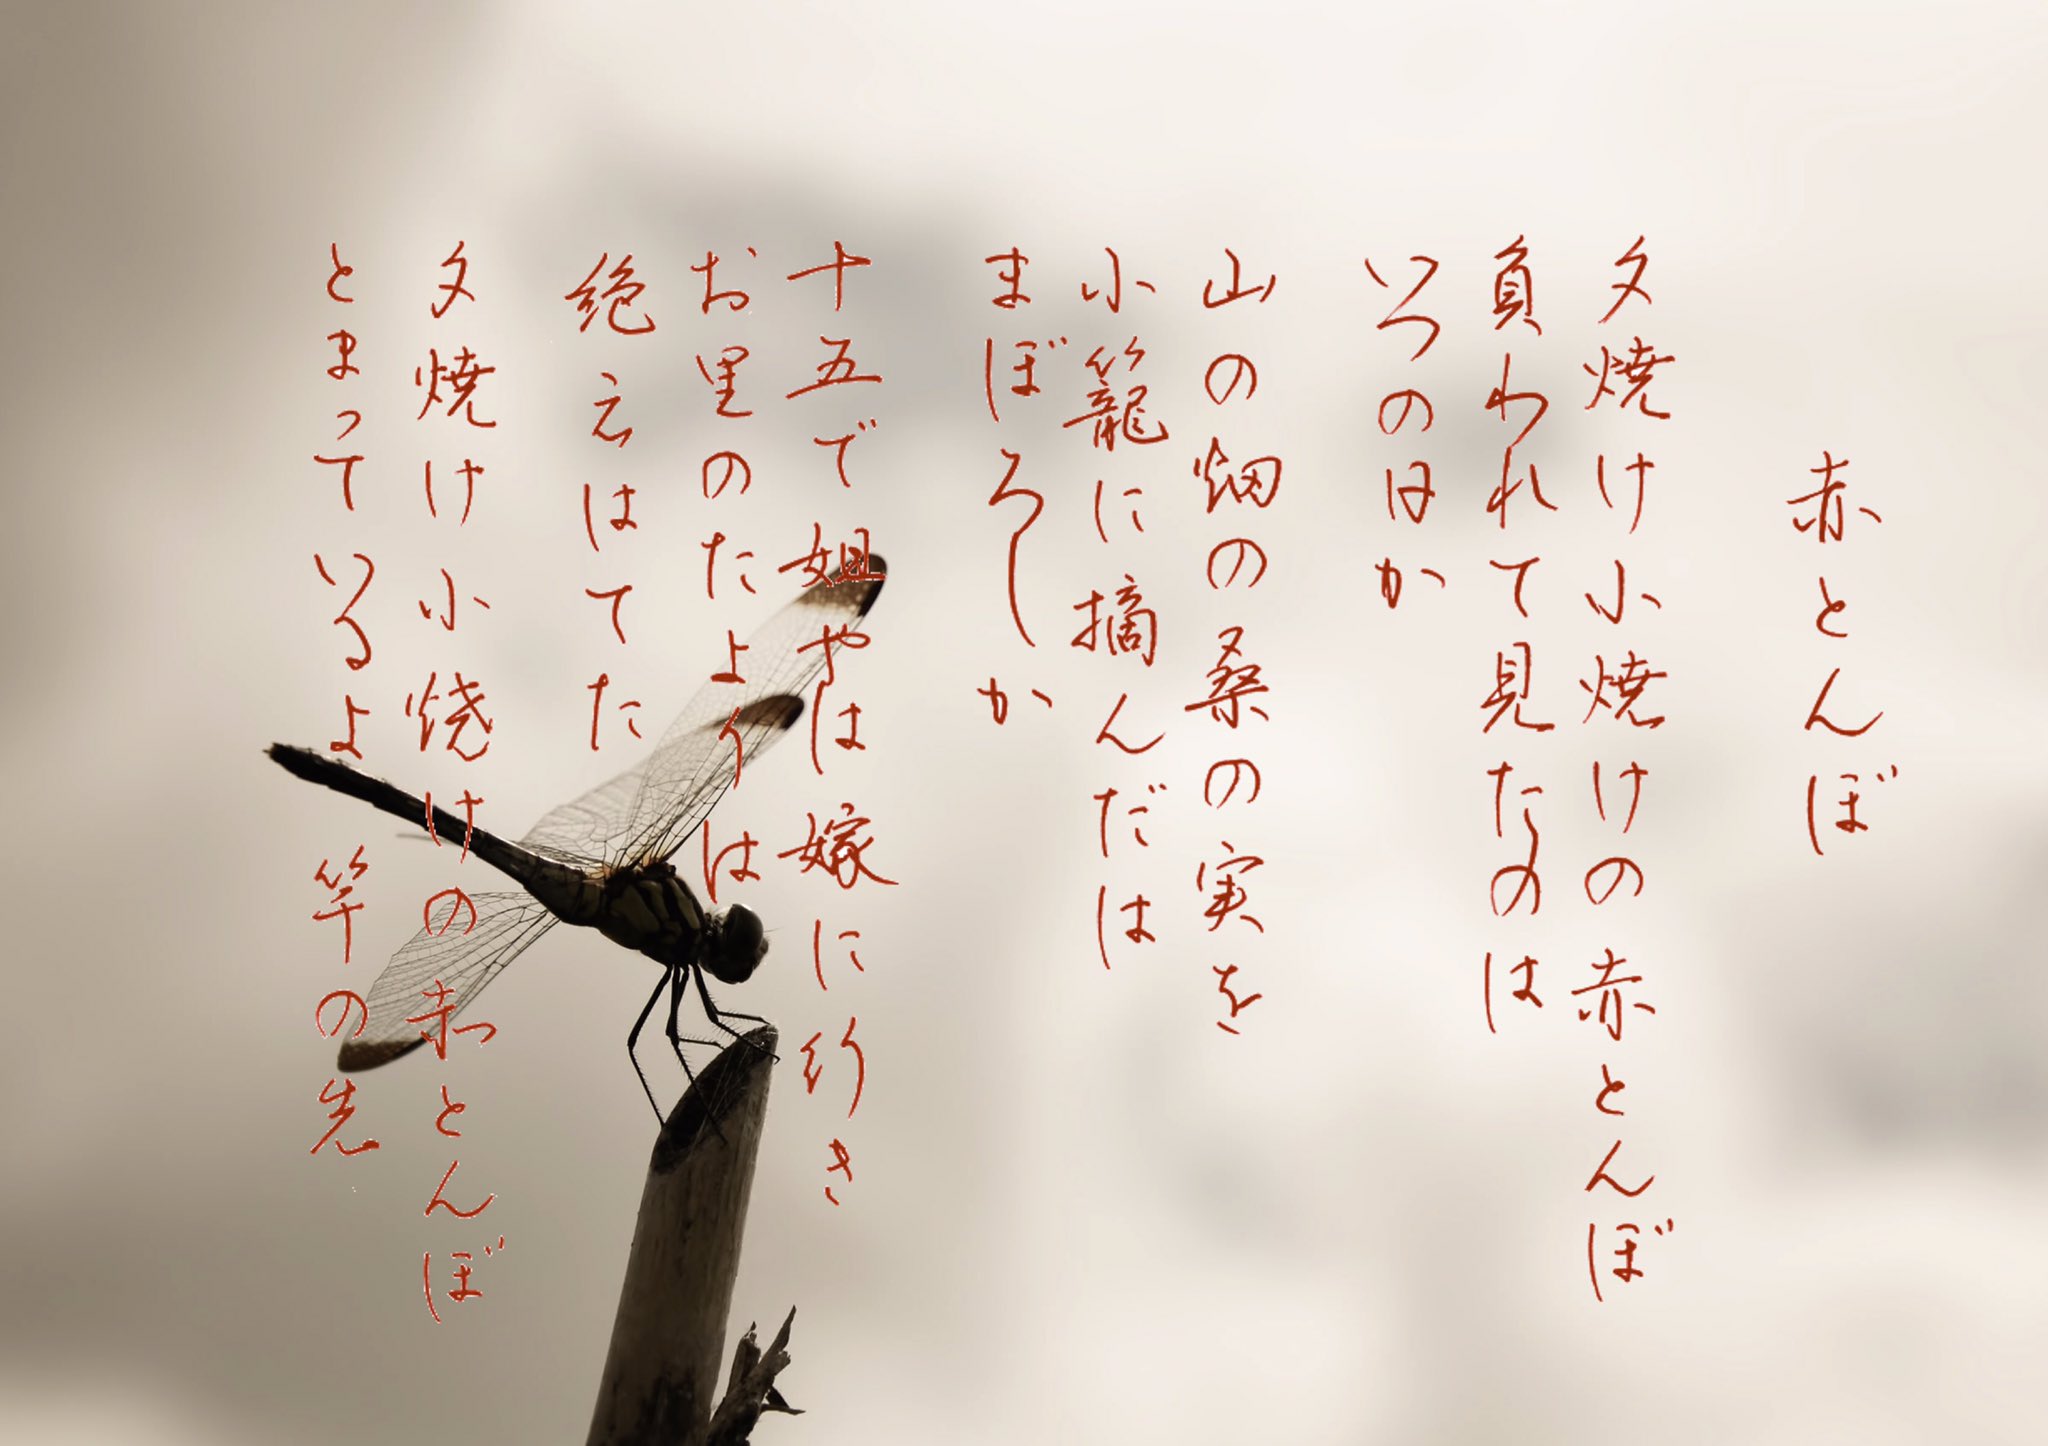 赤とんぼ
夕焼け小焼けの赤とんぼ
負われて見たのは
いつの日か
山の畑の桑の実を
小籠に摘んだは
まぼろしか
十五で姐やは嫁に行き
お里のたよりは
絶えはてた
夕焼け小焼けの赤とんぼ
とまっているよ竿の先